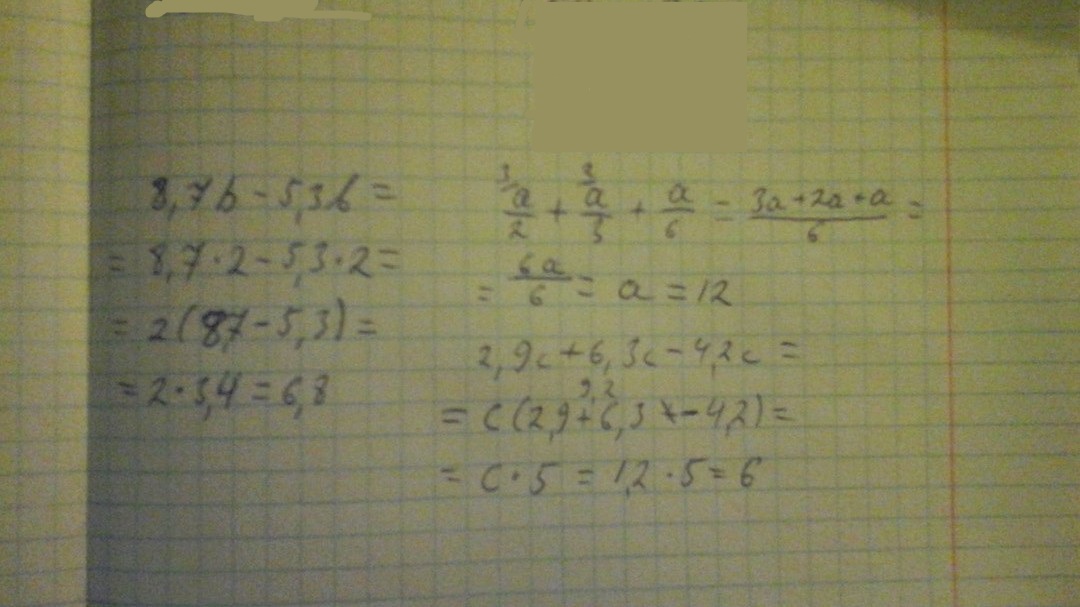 8,7b - 5,3b =
= 8,7 · 2 - 5,3 · 2 =
= 2(8,7 - 5,3) =
= 2 · 3,4 = 6,8
a/2 + a/3 + a/6 = 3a+2a+a/6 =
= 6a/6 = a = 12
2,9c + 6,3c - 4,2c =
9,2
= c(2,9 + 6,3 - 4,2) =
= c · 5 = 1,2 · 5 = 6